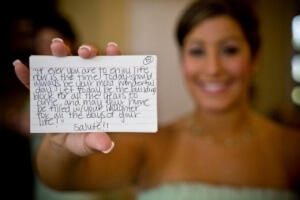 "If ever you are to enjoy life,
now is the time! Today should
always be your most wonderful
day! Let today be the building
block for all the years to
come, and may your home
be filled w/ your laughter
for all the days of your
life!"
Salute!!